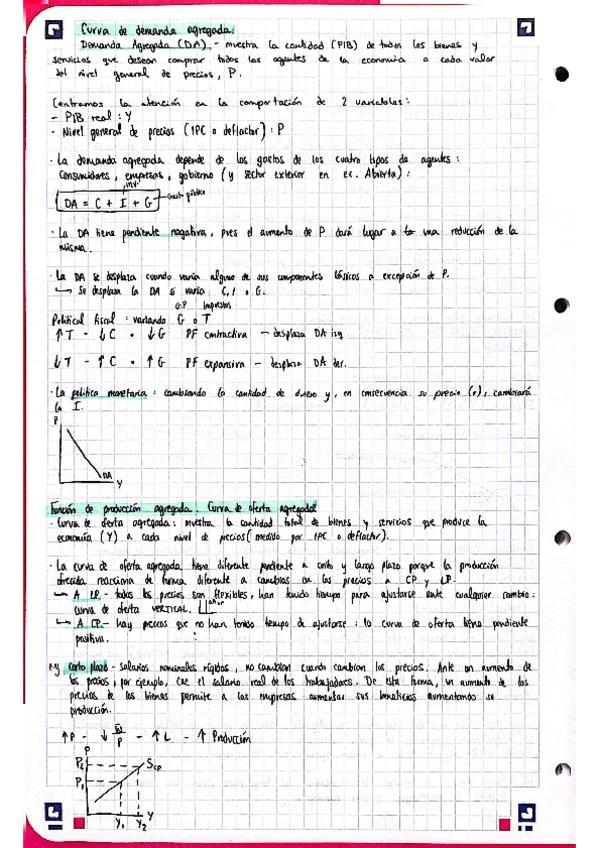 Curva de demanda agregada:
Demanda Agregada (DA).- muestra la cantidad (PIB) de todos los bienes y
servicios que desean comprar todos los agentes de la economía a cada valor
del nivel general de precios, P.
Centramos la atención en la comportación de 2 variables:
- PIB real : Y
- Nivel general de precios (IPC o deflactor) : P
· La demanda agregada depende de los gastos de los cuatro tipos de agentes :
Consumidores, empresas, gobierno (y sector exterior en ec. Abierta) :
inv.
DA = C + I + G Gasto público
· La DA tiene pendiente negativa, pues el aumento de P dará lugar a una reducción de la
misma.
· La DA se desplaza cuando varía alguno de sus componentes básicos a excepción de P.
↳ Se desplaza la DA si varía C, I o G.
G.P Impuestos
Política fiscal : variando G o T
↑T - ↓C o ↓G PF contractiva - desplaza DA izq
↓T - ↑C o ↑G PF expansiva - desplaza DA der.
· La política monetaria : cambiando la cantidad de dinero y, en consecuencia su precio (r), cambiará
la I.
P
DA
Y
Función de producción agregada. Curva de oferta agregada
· Curva de oferta agregada : muestra la cantidad total de bienes y servicios que produce la
economía (Y) a cada nivel de precios (medido por IPC o deflactor).
· La curva de oferta agregada tiene diferente pendiente a corto y largo plazo porque la producción
ofrecida reacciona de forma diferente a cambios en los precios a CP y LP.
↳ A LP.- todos los precios son flexibles, han tenido tiempo para ajustarse ante cualquier cambio :
curva de oferta VERTICAL.
↳ A CP.- hay precios que no han tenido tiempo de ajustarse : la curva de oferta tiene pendiente
positiva.
ej corto plazo - salarios nominales rígidos, no cambian cuando cambian los precios. Ante un aumento de
los precios, por ejemplo, cae el salario real de los trabajadores. De esta forma, un aumento de los
precios de los bienes permite a las empresas aumentar sus beneficios aumentando su
producción.
↑P - ↓ W/P - ↑L - ↑ Producción
P
P2 Scp
P1
Y1 Y2 Y